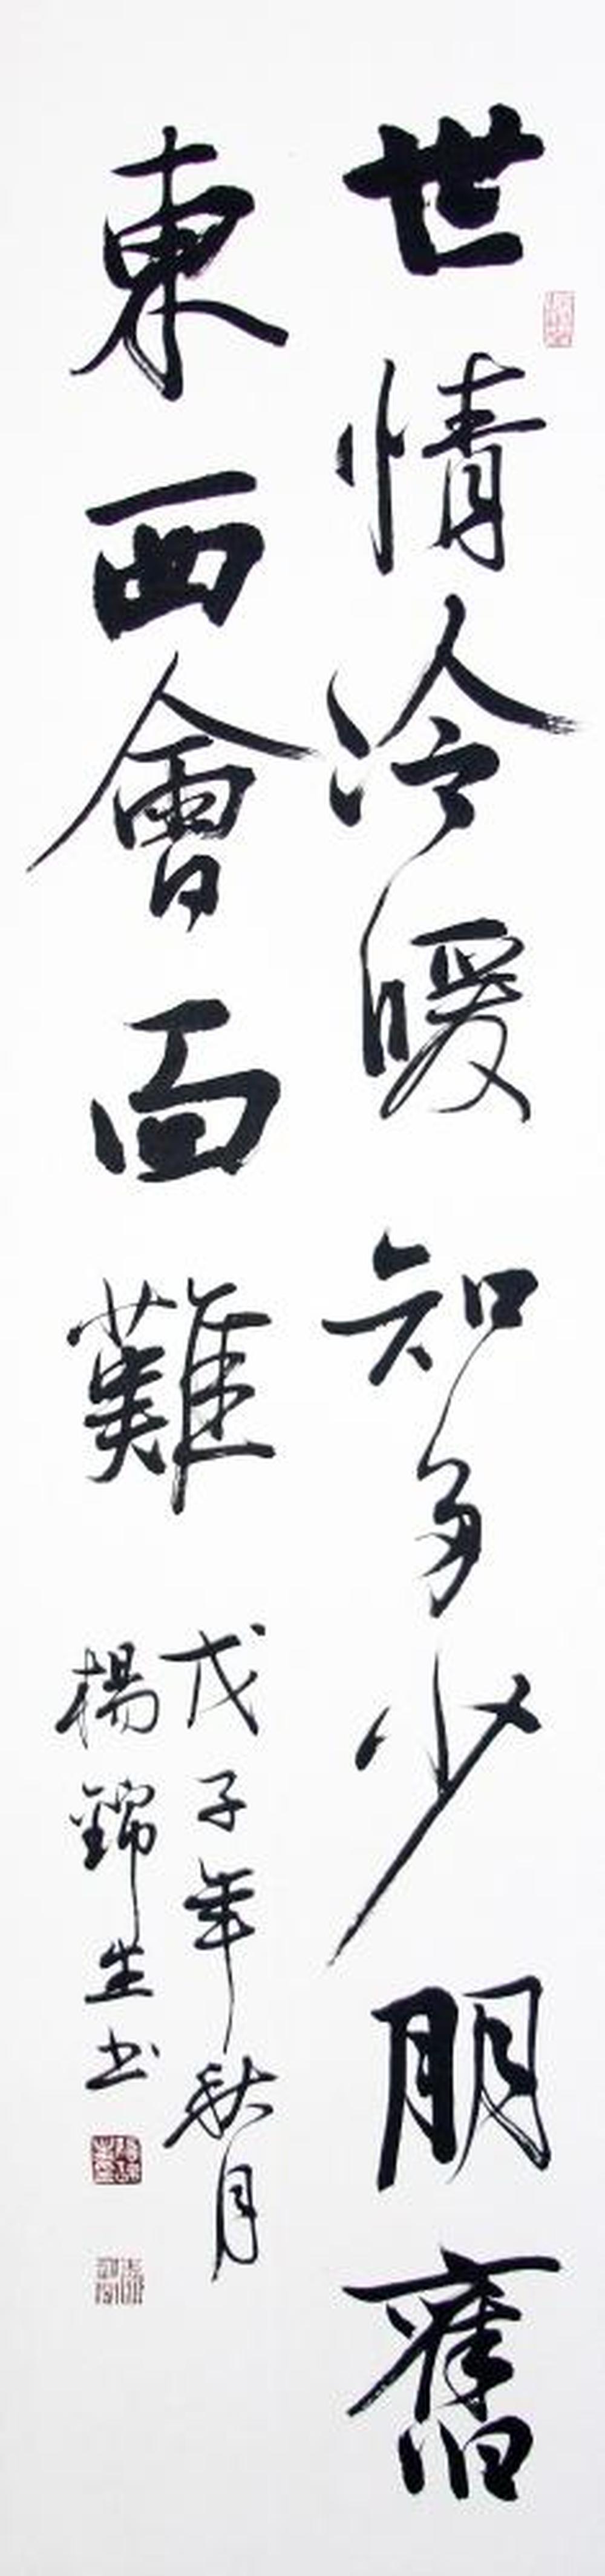 世情冷暖知多少朋舊
東西會面難
戊子年秋月
楊錦生书